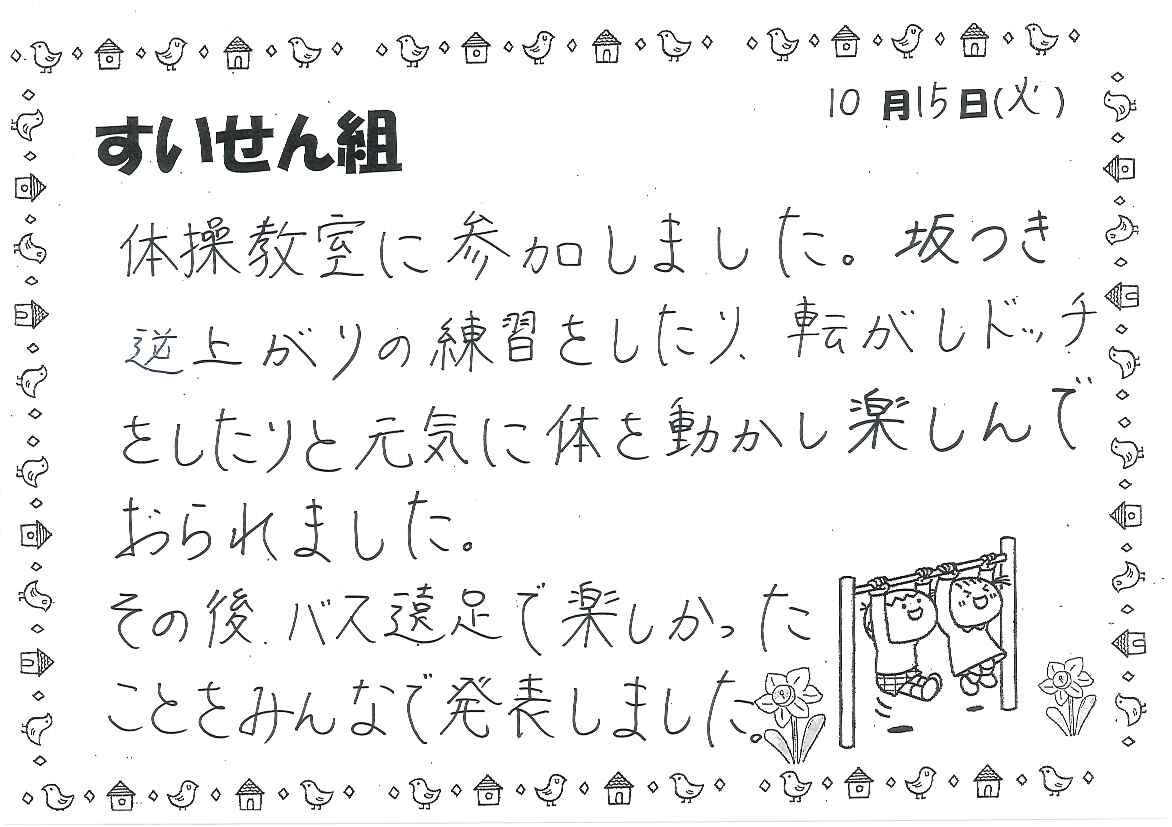 10月15日(火)
すいせん組
体操教室に参加しました。坂つき
逆上がりの練習をしたり、転がしドッチ
をしたりと元気に体を動かし楽しんで
おられました。
その後、バス遠足で楽しかった
ことをみんなで発表しました。